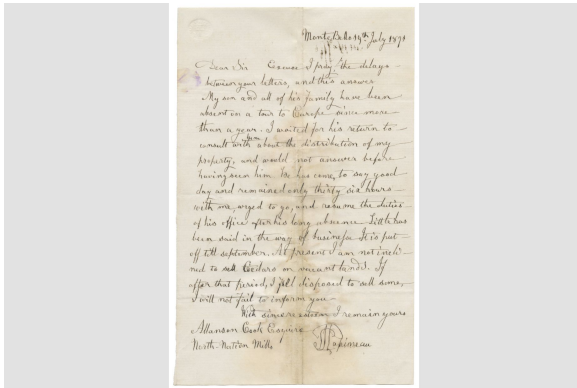 Monte Bello 19th July 1871
Dear Sir Excuse I pray the delays
between your letters, and this answer
My son and all of his family have been
absent on a tour to Europe since more
than a year. I waited for his return to
consult with him about the distribution of my
property, and would not answer before
having seen him. He has come, to say good
day and remained only thirty six hours
with me, urged to go, and resume the duties
of his office after his long absence. Little has
been said in the way of business It is put
off till september. At present I am not incli-
ned to sell Cedars on vacant lands. If
after that period, I feel disposed to sell some,
I will not fail to inform you
With sincere esteem I remain yours
Allanson Cook Esquire
North-Nation Mills
Papineau